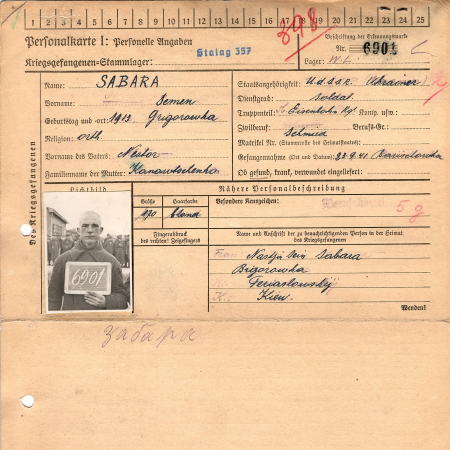 1 2 3 4 5 6 7 8 9 10 11 12 13 14 15 16 17 18 19 20 21 22 23 24 25
398
Personalkarte I: Personelle Angaben
Kriegsgefangenen-Stammlager: Stalag 357
Beschriftung der Erkennungsmarke
Nr. 6901
Lager:
Des Kriegsgefangenen
Name: SABARA
Vorname: Semen
Geburtstag und -ort: 1913 Grigorowka
Religion: orth.
Vorname des Vaters: Nestor
Familienname der Mutter: Kanawtschenko
Staatsangehörigkeit: U.d.S.S.R. Ukrainer
Dienstgrad: Soldat
Truppenteil: Eisenbahn Rgt. Komp. usw.:
Zivilberuf: Schmied Berufs-Gr.:
Matrikel Nr. (Stammrolle des Heimatstaates):
Gefangennahme (Ort und Datum): 23.9.41
Ob gesund, krank, verwundet eingeliefert:
Lichtbild
6901
Nähere Personalbeschreibung
Größe Haarfarbe
170 blond
Besondere Kennzeichen:
5 g
Fingerabdruck
des rechten! Zeigefingers
Name und Anschrift der zu benachrichtigenden Person in der Heimat
des Kriegsgefangenen
Frau Nastja Sabara
Kiew
Wenden!
забара